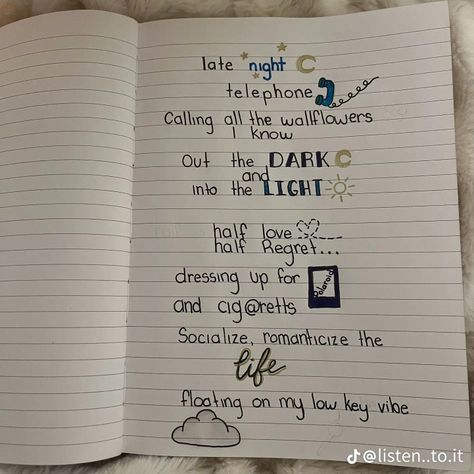 late night
telephone
Calling all the wallflowers
I know
Out the DARK
and
into the LIGHT
half love
half Regret...
dressing up for Polaroid
and cig@retts
Socialize, romanticize the
life
floating on my low key vibe
@listen..to.it